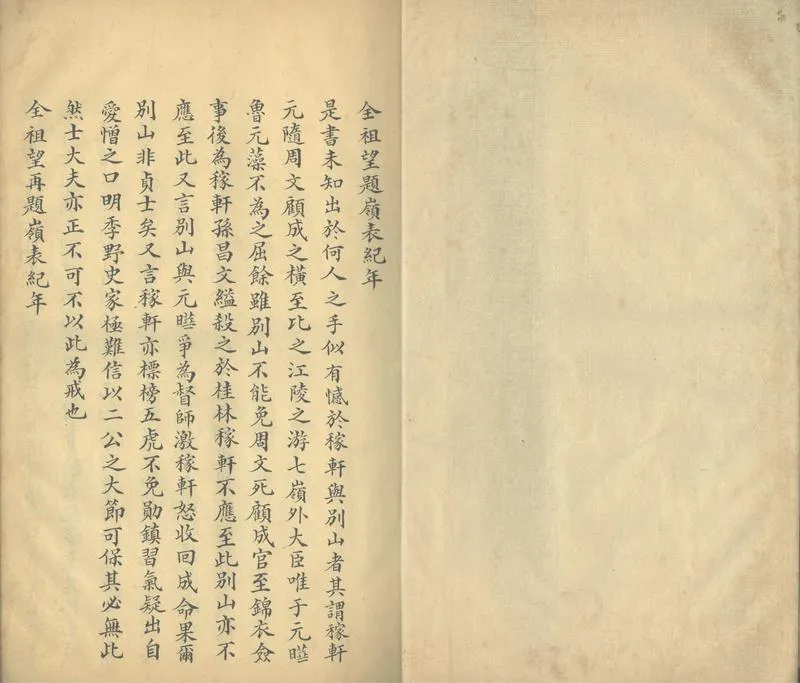 全祖望題嶺表紀年
是書未知出於何人之手似有憾於稼軒與別山者其謂稼軒
元隨周文顧成之橫至比之江陵之游七嶺外大臣唯于元曗
魯元藻不為之屈餘雖別山不能免周文死顧成官至錦衣僉
事後為稼軒孫昌文縊殺之於桂林稼軒不應至此別山亦不
應至此又言別山與元曗爭為督師激稼軒怒收回成命果爾
別山非貞士矣又言稼軒亦標榜五虎不免勛鎮習氣疑出自
愛憎之口明季野史家極難信以二公之大節可保其必無此
然士大夫亦正不可不以此為戒也
全祖望再題嶺表紀年